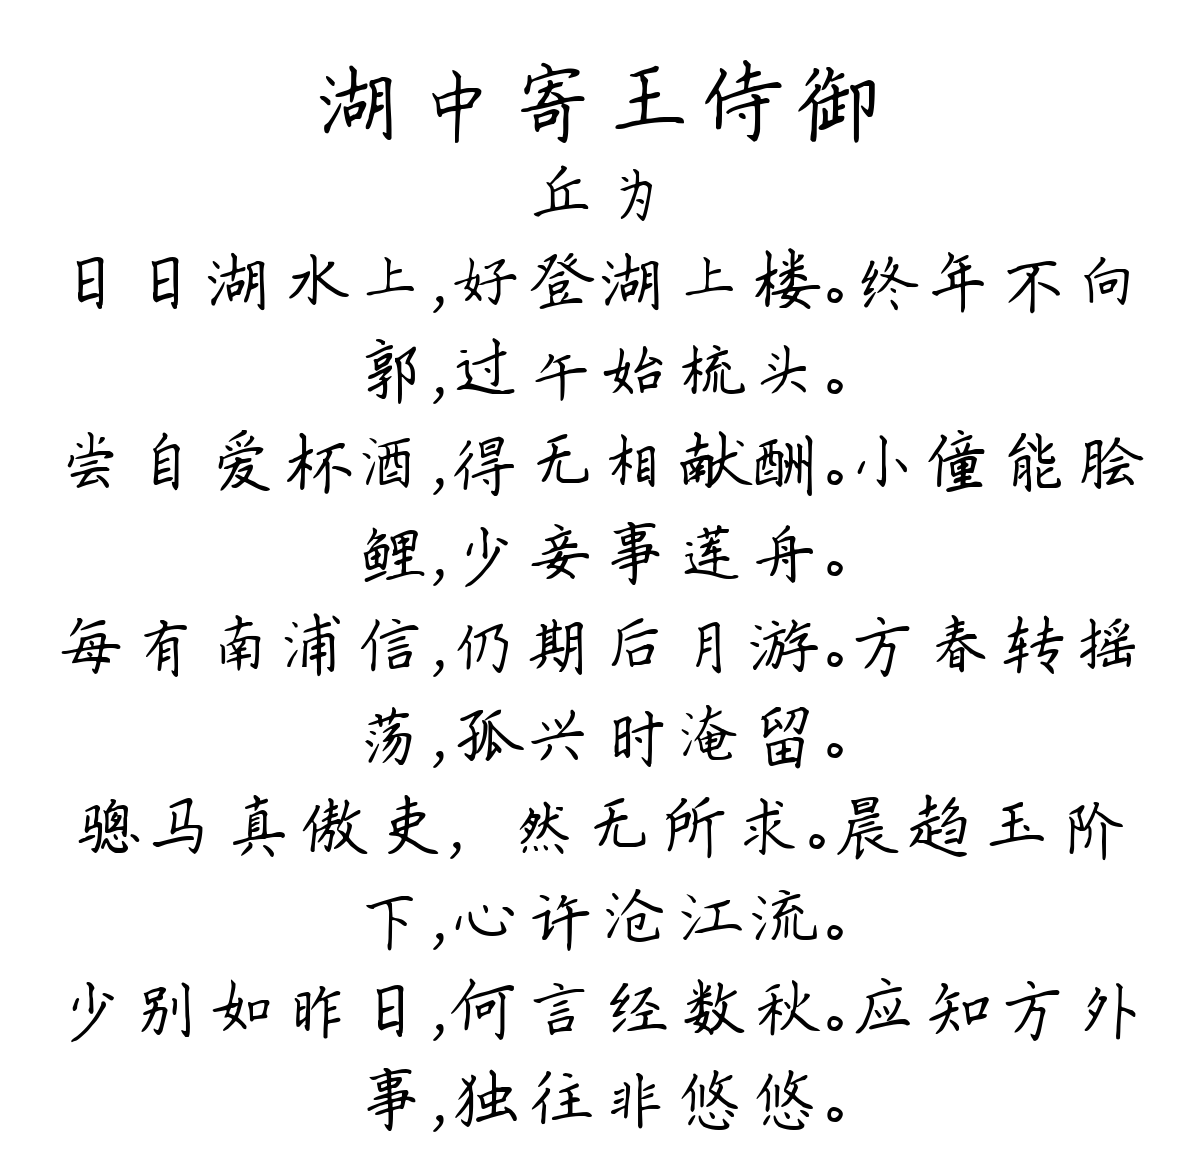 湖中寄王侍御
丘为
日日湖水上,好登湖上楼。终年不向
郭,过午始梳头。
尝自爱杯酒,得无相献酬。小僮能脍
鲤,少妾事莲舟。
每有南浦信,仍期后月游。方春转摇
荡,孤兴时淹留。
骢马真傲吏, 然无所求。晨趋玉阶
下,心许沧江流。
少别如昨日,何言经数秋。应知方外
事,独往非悠悠。